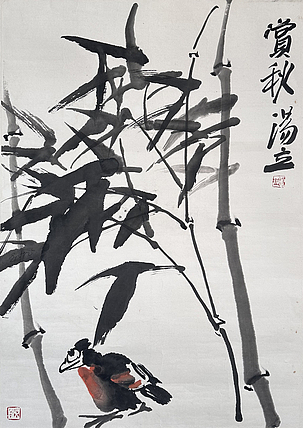 賞秋湯立